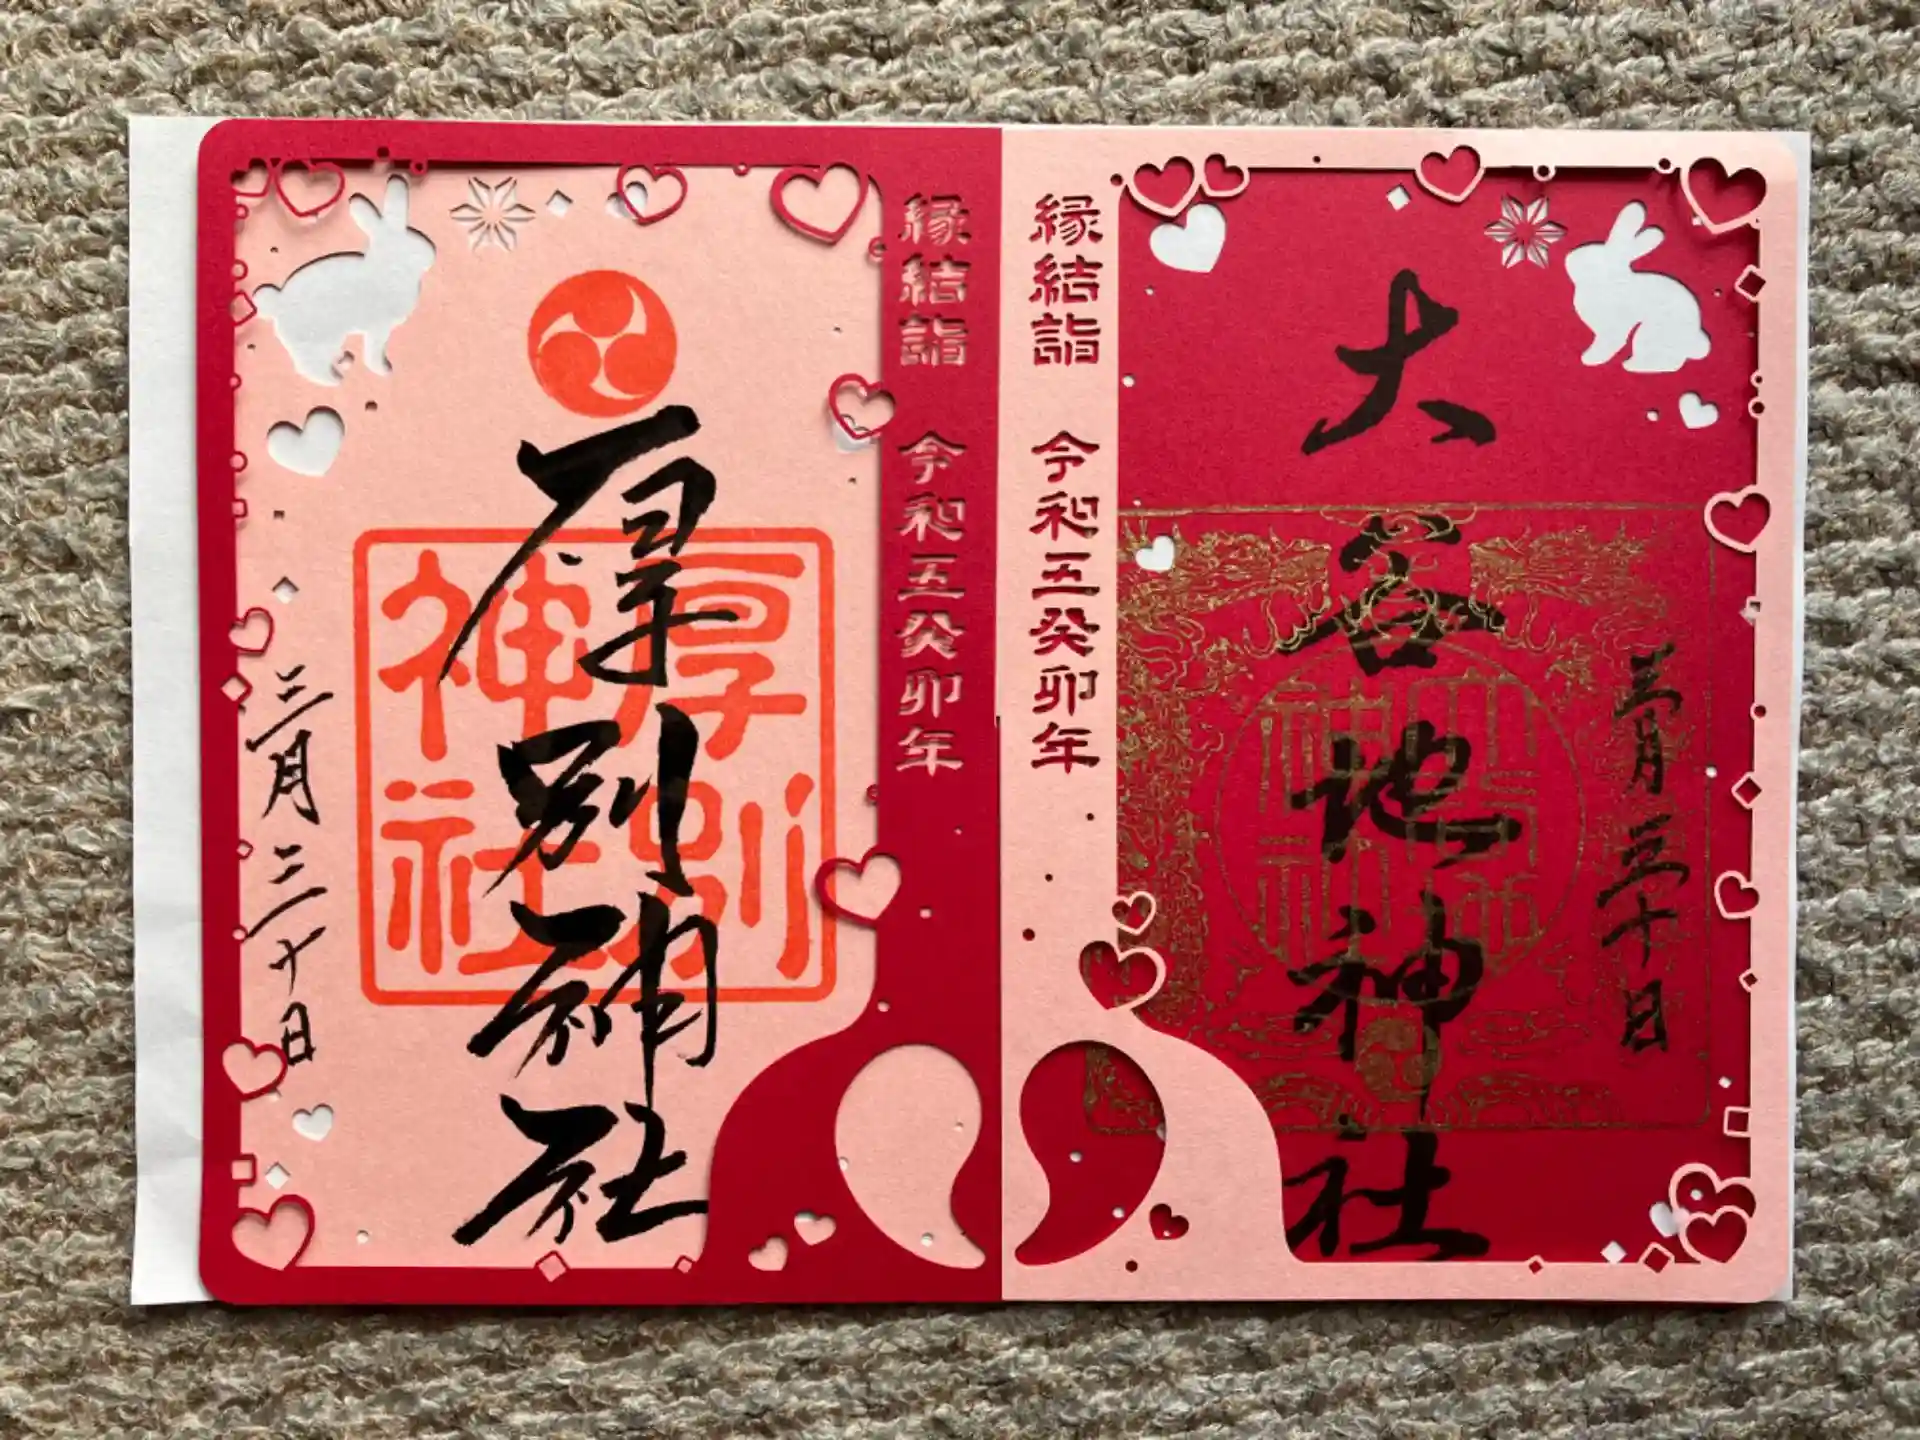 縁結詣 令和五癸卯年
大谷地神社
三月三十日
縁結詣 令和五癸卯年
厚別神社
厚別
神社
三月三十日